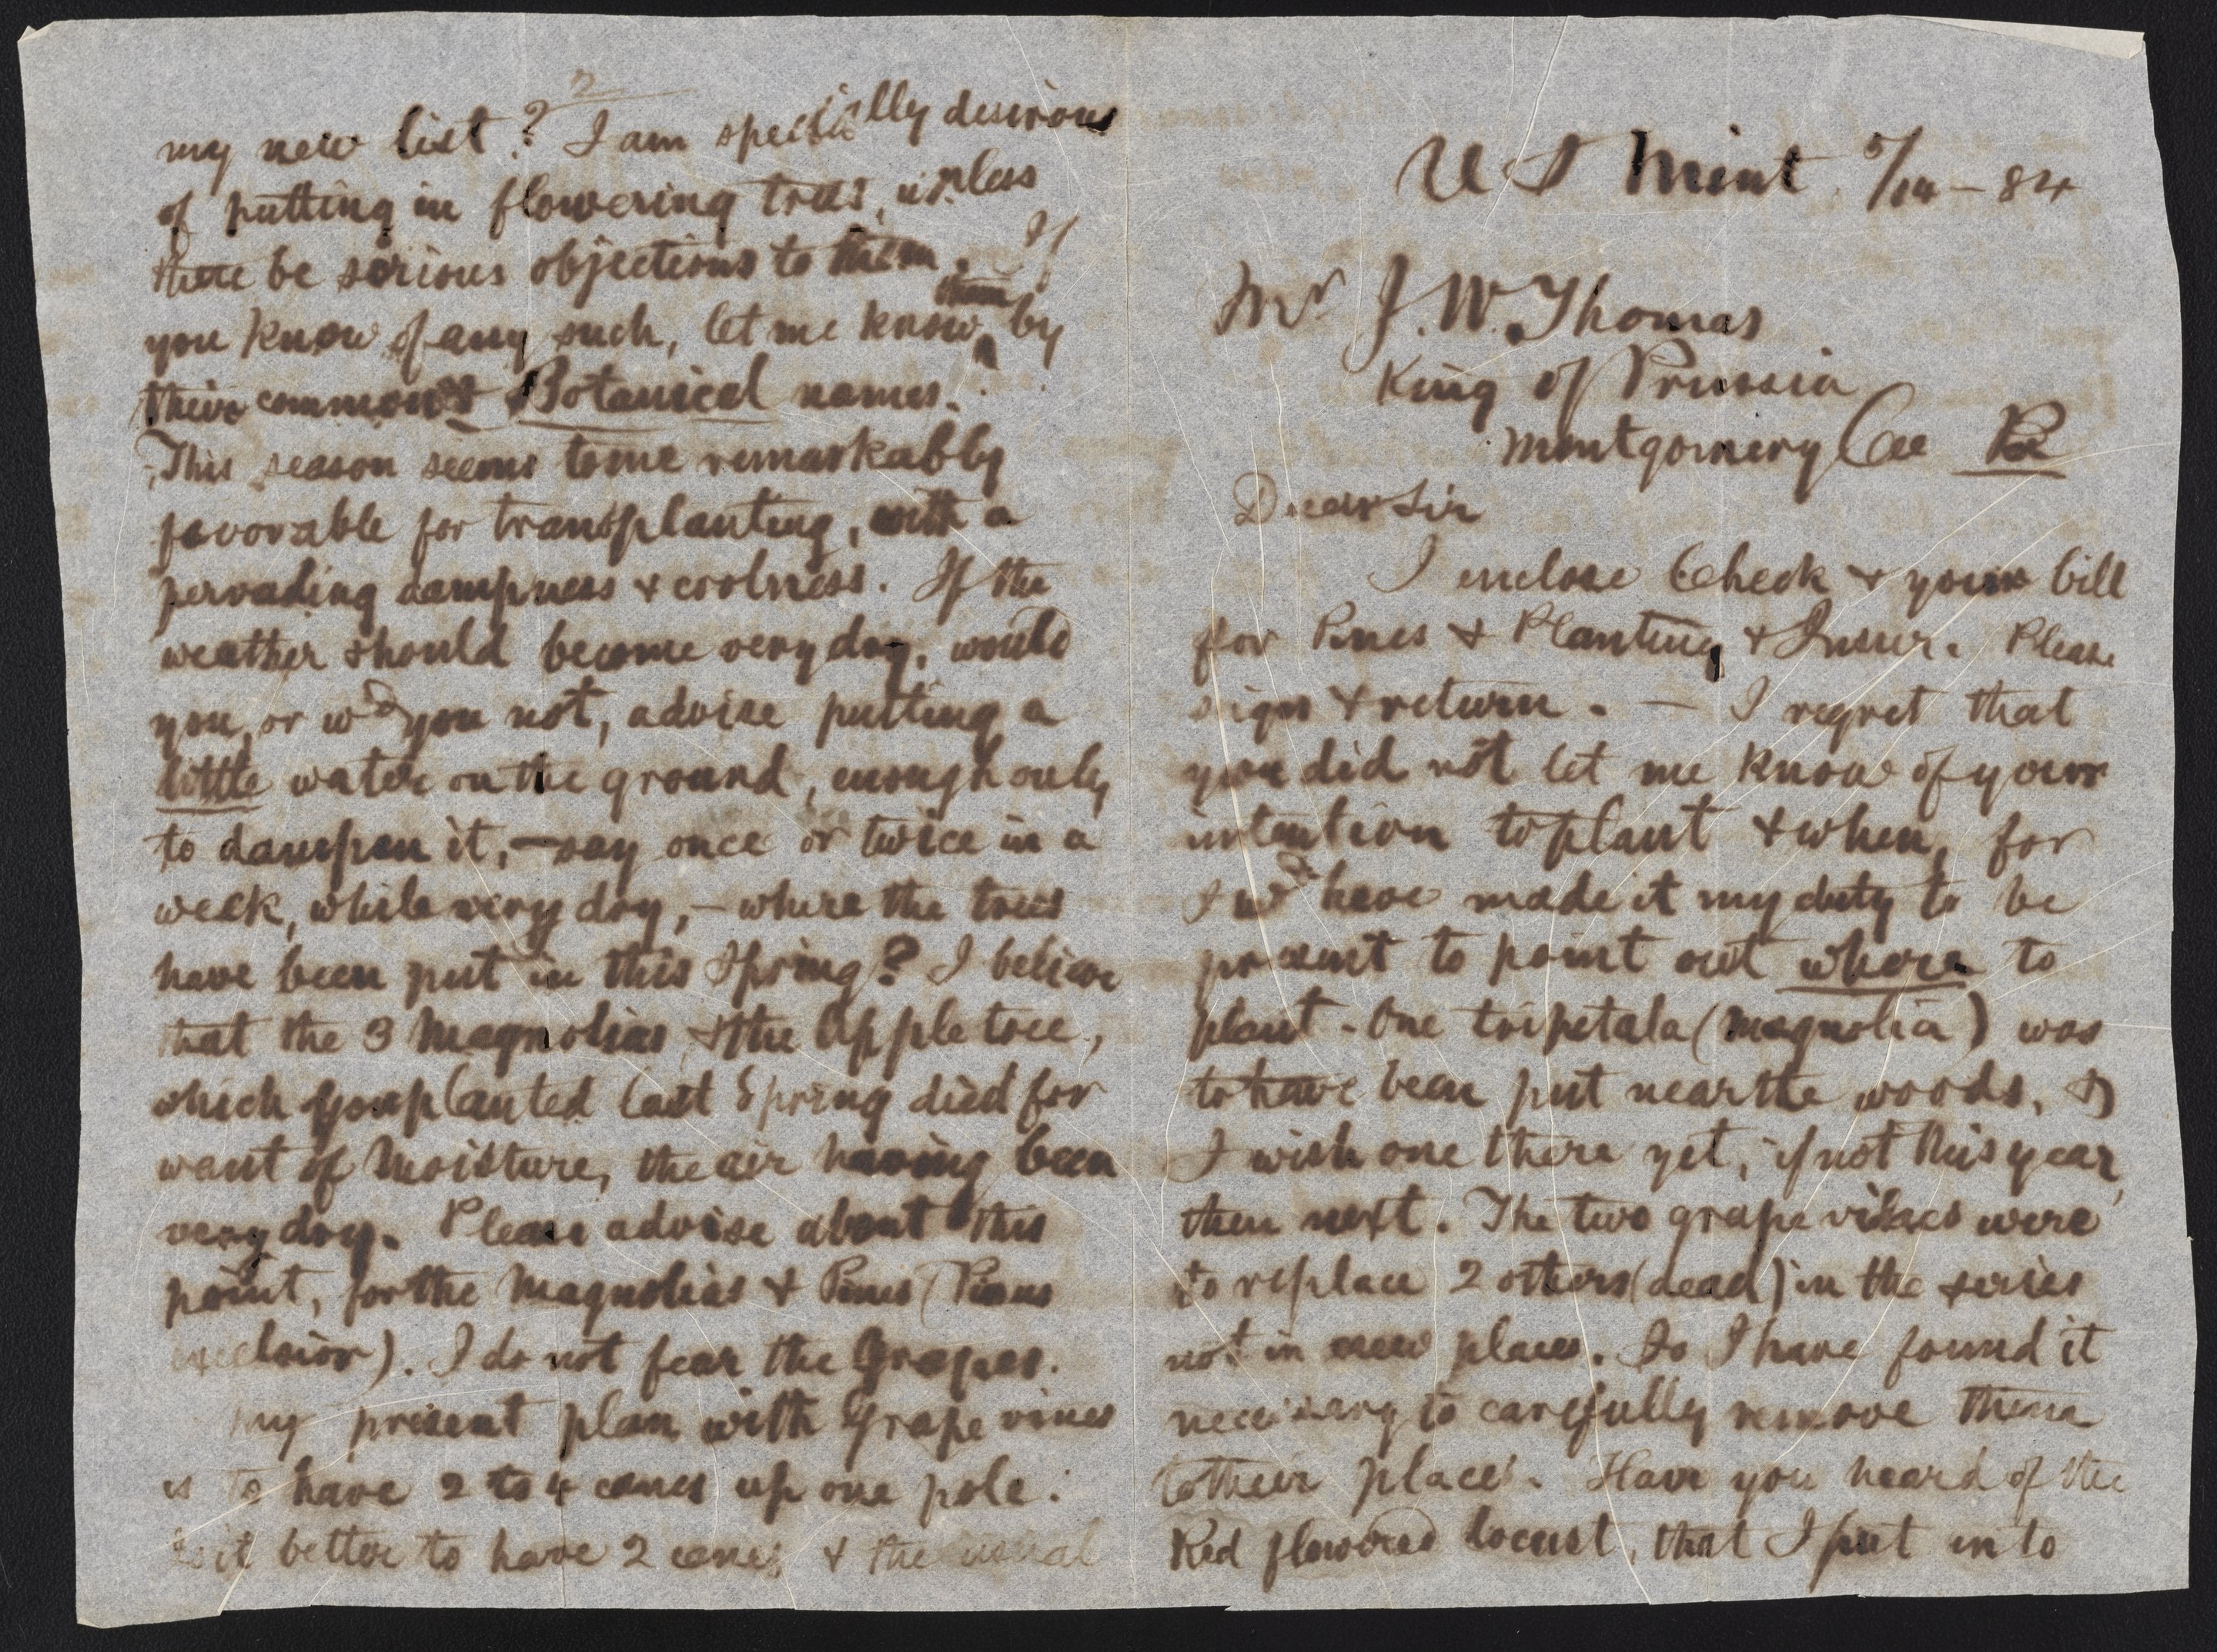 U S Mint 5/14 - 84
Mr J. W. Thomas
King of Prussia
Montgomery Co Pa
Dear Sir
I enclose Check & your bill
for Pines & Planting & Insur. Please
sign & return. — I regret that
you did not let me know of your
intention to plant & when, for
I wd have made it my duty to be
present to point out where to
plant - One tripetala (Magnolia) was
to have been put near the woods, &
I wish one there yet, if not this year,
then next. The two grape vines were
to replace 2 others (dead) in the series
not in new places. So I have found it
necessary to carefully remove them
to their place. Have you heard of the
Red flowered locust, that I put into
2
my new list? I am specially desirous
of putting in flowering trees, unless
there be serious objections to them. If
you know of any such, let me know them by
their common & Botanical names.
This season seems to me remarkably
favorable for transplanting, with a
pervading dampness & coolness. If the
weather should become very dry, would
you, or wd you not, advise putting a
little water on the ground, enough only
to dampen it, — say once or twice in a
week, while very dry, — where the trees
have been put in this Spring? I believe
that the 3 Magnolias & the Apple tree,
which you planted last Spring died for
want of Moisture, the air having been
very dry. Please advise about this
point, for the Magnolias & Pines (Pinus
excelsior). I do not fear the Grapes.
My present plan with Grape vines
is to have 2 to 4 canes up one pole.
Is it better to have 2 canes & the usual